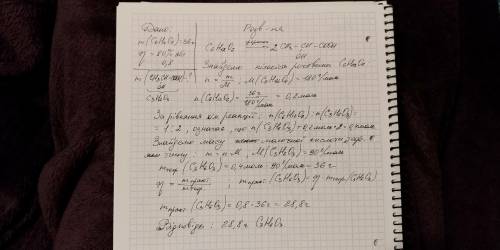 Дано:
m(C₆H₁₂O₆)=36г
η = 80% або
0,8
m(CH₃CH-COOH)-?
OH
C₃H₆O₃
Розв-ня
C₆H₁₂O₆ → 2 CH₃-CH-COOH
OH
Знайдемо кількість речовини C₆H₁₂O₆
n = m/M, M(C₆H₁₂O₆) = 180 г/моль
n(C₆H₁₂O₆) = 36г/180 г/моль = 0,2 моль
За рівнянням реакції: n(C₆H₁₂O₆):n(C₃H₆O₃)
= 1:2, означає, що n(C₃H₆O₃)=0,2 моль·2=0,4 моль
Знайдемо масу молочної кислоти
m = n·M, M(C₃H₆O₃) = 90 г/моль
mтеор.(C₃H₆O₃) = 0,4 моль·90 г/моль = 36г
η = mпракт/mтеор, mпракт(C₃H₆O₃) = η·mтеор(C₃H₆O₃)
mпракт(C₃H₆O₃) = 0,8·36г = 28,8г
Відповідь: 28,8г C₃H₆O₃